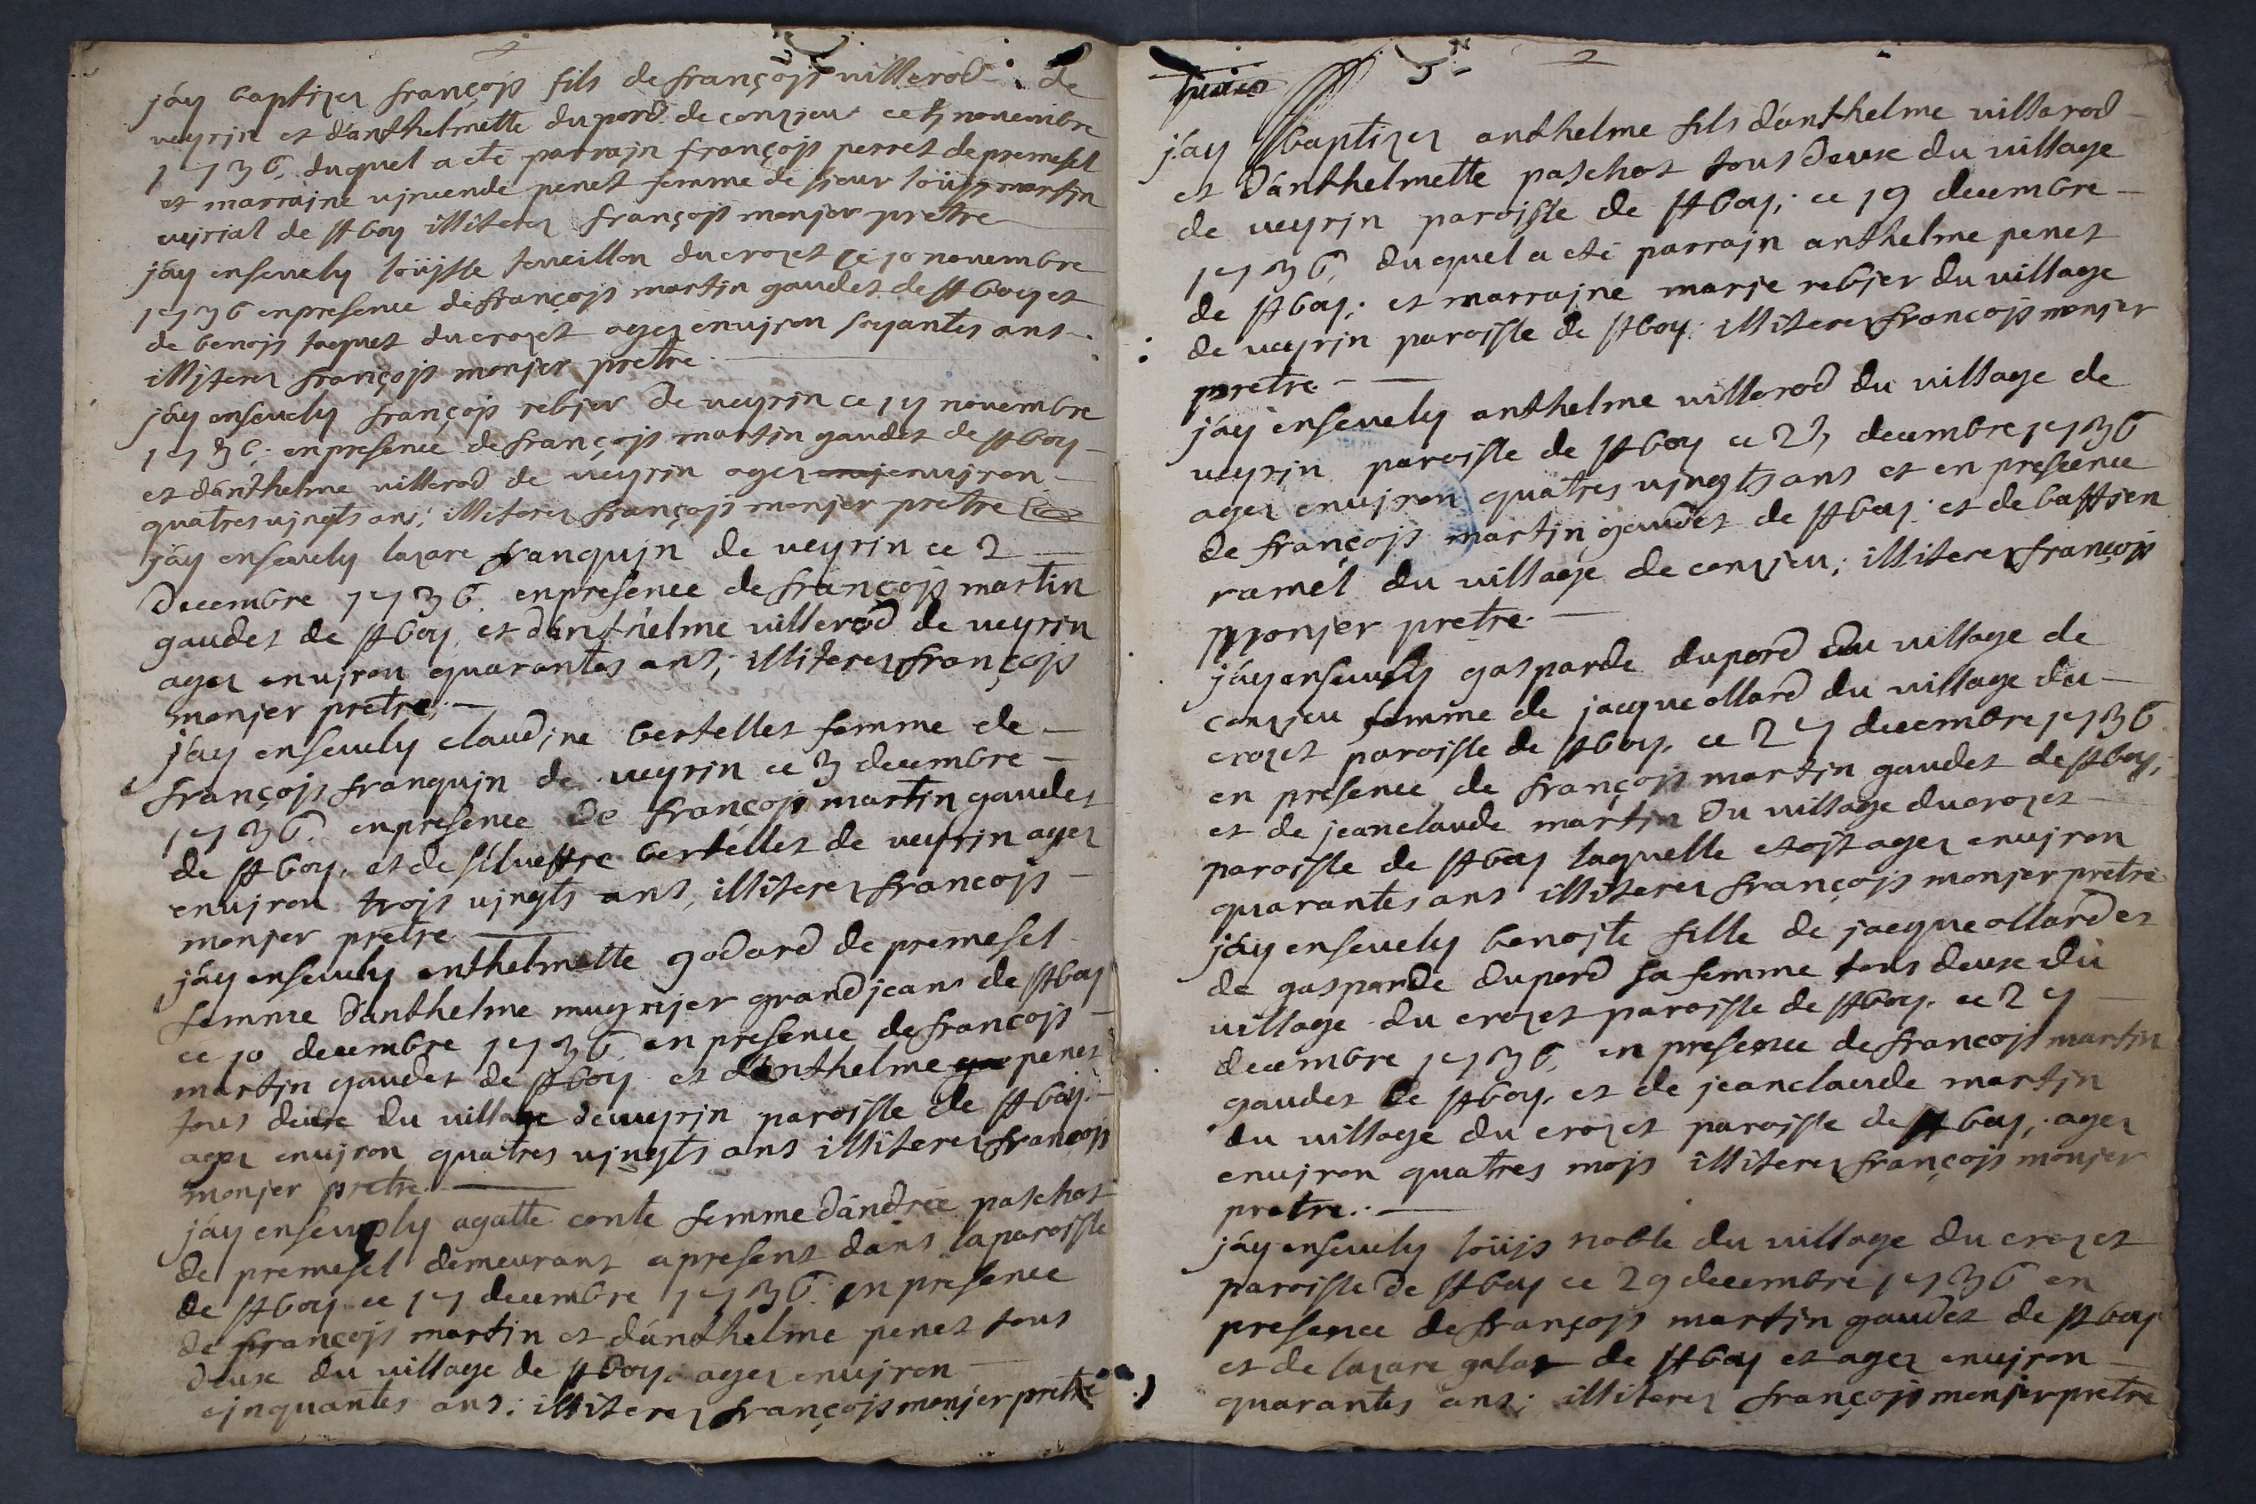 jáy baptizez françois fils de françois villerod de
veyrin et d'anthelmette dupord de conzieu ce 5 novembre
1736, duquel a eté parrajn françojs perret de premesel
et marrajne penet femme de sieur loüis martin
de st boy illiterez françojs monjer prêtre
jáy ensevely loüjsse teveillon du crozet ce 10 novembre
1736 en presence de françojs martin gaudet de st boy et
de benojs jaquet du crozet agez envjron soyantes ans
illjterez françojs monjer prêtre
jáy ensevely françojs rebjer de veyrin ce 14 novembre
1736. en presence de françojs martin gaudet de st boy
et dánthelme villerod de veyrin agez envjron
quatres vjngts ans; illiterez françojs monjer prêtre
jáy ensevely lazare franqujn de veyrin ce 2
decembre 1736. en presence de françojs martin
gaudet de st boy, et dánthelme villerod de veyrin
agez envjron quarantes ans; illiterez françojs
monjer prêtre;
jáy ensevely claudjne bertellet femme de
françojs franqujn de veyrin ce 3 decembre
1736. en presence de françojs martin gaudet
de st boy, et de silvestre bertellet de veyrin agez
envjron trojs vjngts ans, illiterez francojs
monjer prêtre
jáy ensevely anthelmette godard de premesel
femme dánthelme mugnjer grand jeans de st boy
ce 10 decembre 1736, en presence de francojs
martjn gaudet de st boy et dánthelme penet
tous deux du village de veyrin paroisse de st boy.
agez envjron quatres vjngts ans illiterez francojs
monjer prêtre.
jáy ensevely agatte conte femme dándrée paschot
de premesel demeurant a present dans la paroisse
de st boy ce 17 decembre 1736. en presence
de françojs martin et dánthelme penet tous
deux du village de st boy. agez envjron
cjnquantes ans; illiterez françojs monjer prêtre
2
jáy baptizez anthelme fils dánthelme villerod
et dánthelmette paschot tous deux du village
de veyrjn paroisse de st boy; ce 19 decembre
1736, duquel a eté parrajn anthelme penet
de st boy; et marrajne marje rebjer du village
de veyrin paroisse de st boy; illiterez françojs monjer
prêtre
jáy ensevely anthelme villerod du village de
veyrin paroisse de st boy ce 23 decembre 1736
agez envjron quatres vjngts ans et en presence
de françojs martjn gaudet de st boy; et de bastien
ramel du village de conzieu; illiterez françojs
monjer pretre.
jáy ensevely gasparde dupord du village de
conzieu femme de jacque ollard du village du
crozet paroisse de st boy, ce 27 decembre 1736
en presence de françojs martjn gaudet de st boy,
et de jeanclaude martin du village du crozet
paroisse de st boy laquelle etojt agez envjron
quarantes ans illiterez françojs monjer prêtre
jáy ensevely benojte fille de jacque ollard et
de gasparde dupord sa femme tous deux du
village du crozet paroisse de st boy. ce 27
decembre 1736, en presence de françojs martin
gaudet de st boy, et de jeanclaude martjn
du village du crozet paroisse de st boy, agez
envjron quatres mojs illiterez françojs monjer
prêtre.
jáy ensevely loüjs noble du village du crozet
paroisse de st boy ce 29 decembre 1736 en
presence de françojs martjn gaudet de st boy
et de lazare galat de st boy et agez envjron
quarantes ans; illiterez françojs monjer prêtre